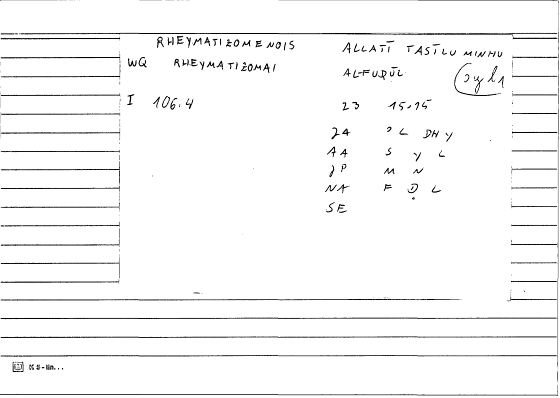 RHEYMATIZOMENOIS
WQ RHEYMATIZOMAI
I 106.4
ALLATĪ TASĪLU MINHU
AL-FUḌŪL
syl1
23 15.15
JA ʾ L DH Y
AA S Y L
JP M N
NA F Ḍ L
SE